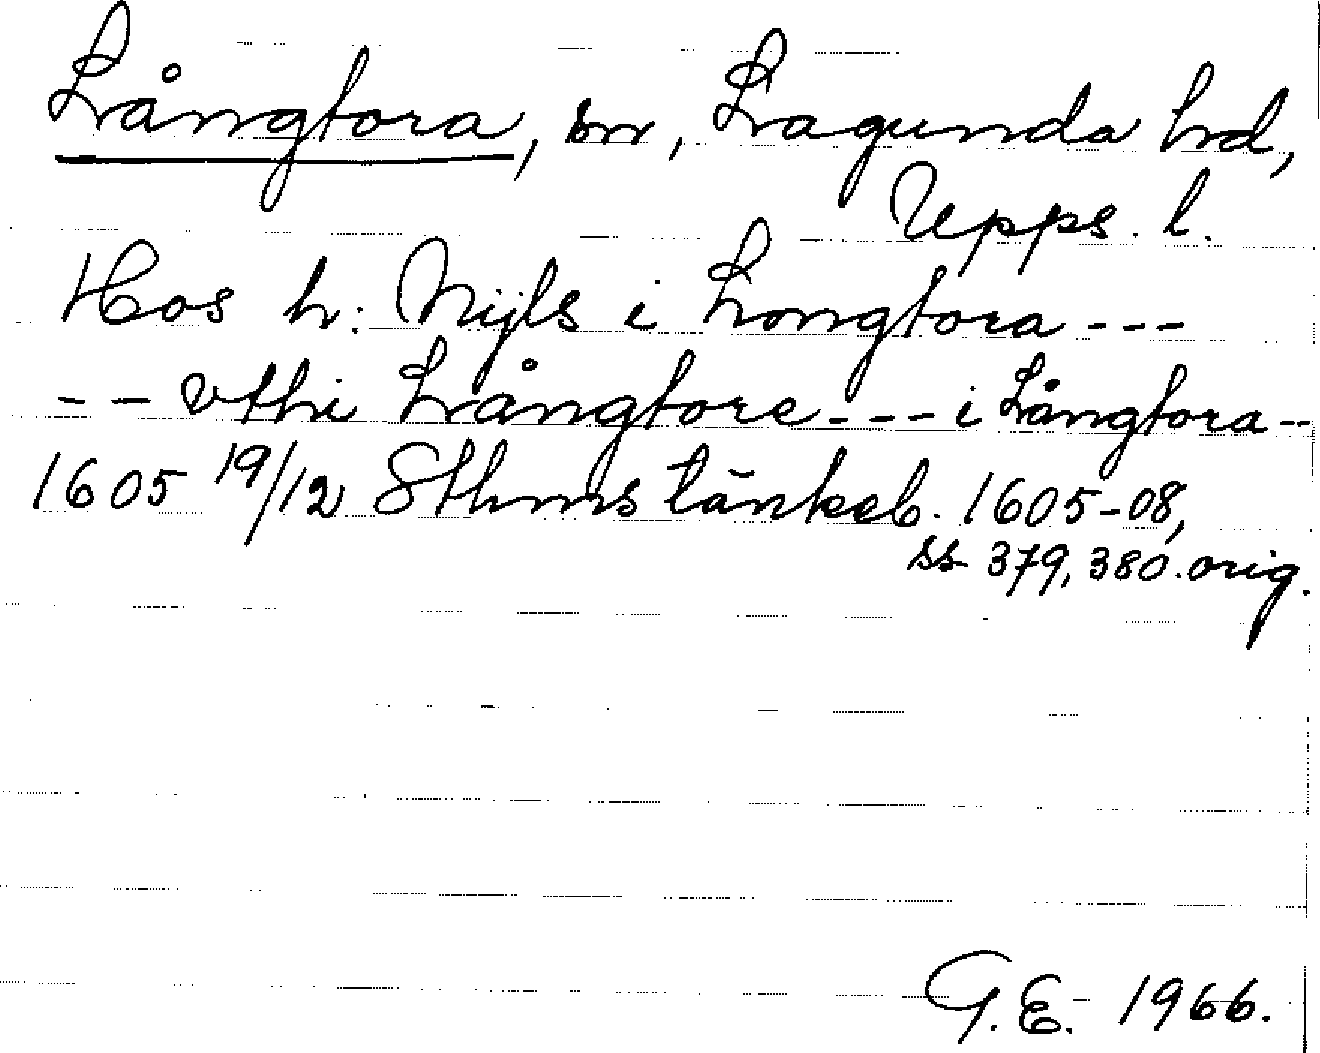 Långtora, sn, Lagunda hd,
Upps. l.
Hos h: Nijls i Longtora ---
-- vthi Långtore --- i Långtora --
1605 19/12 Sthms tänkeb. 1605-08,
ss 379, 380. orig.
G.E. 1966.